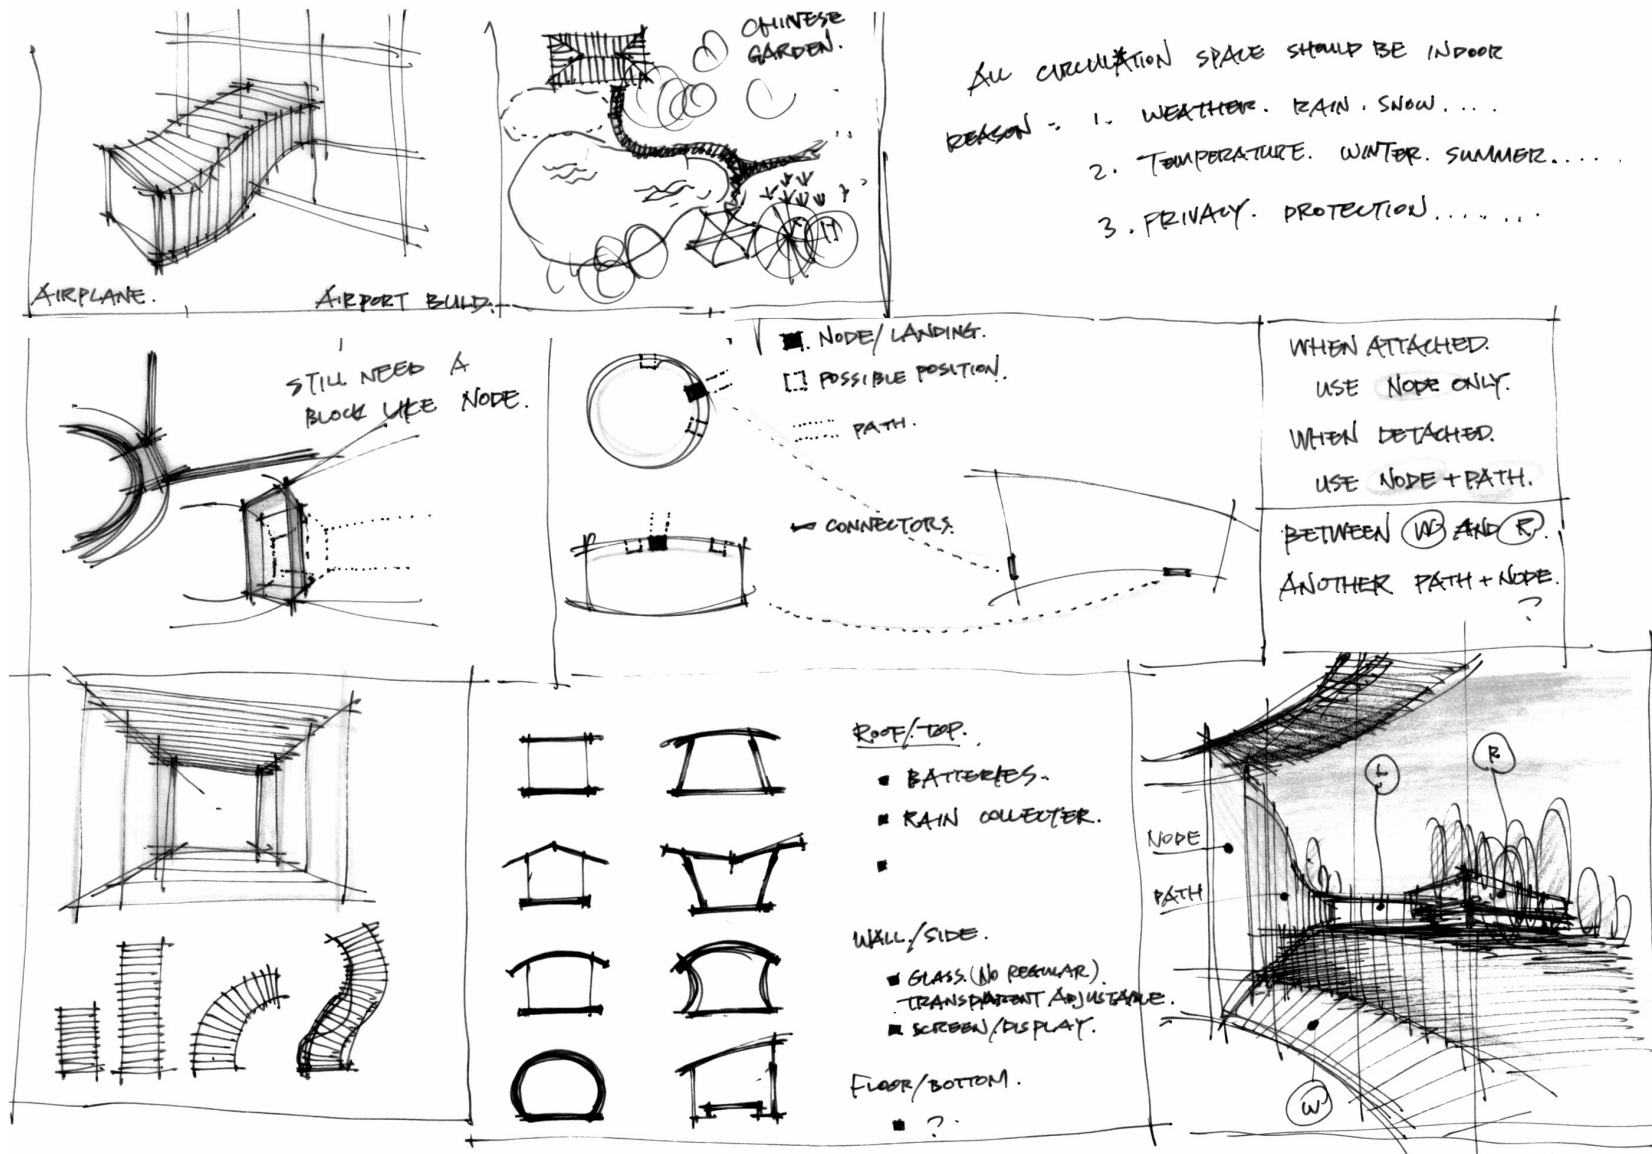 AIRPLANE.
AIRPORT BUILD.
CHINESE
GARDEN.
ALL CIRCULATION SPACE SHOULD BE INDOOR
REASON : 1. WEATHER. RAIN. SNOW....
2. TEMPERATURE. WINTER. SUMMER.....
3. PRIVACY. PROTECTION........
STILL NEED A
BLOCK LIKE NODE.
NODE/LANDING.
POSSIBLE POSITION.
PATH.
CONNECTORS.
WHEN ATTACHED.
USE NODE ONLY.
WHEN DETACHED.
USE NODE + PATH.
BETWEEN W AND R.
ANOTHER PATH + NODE.
?
ROOF/TOP.
BATTERIES.
RAIN COLLECTER.
WALL/SIDE.
GLASS. (NO REGULAR).
TRANSPARENT ADJUSTABLE.
SCREEN/DISPLAY.
FLOOR/BOTTOM.
?
NODE
PATH
L
R
W